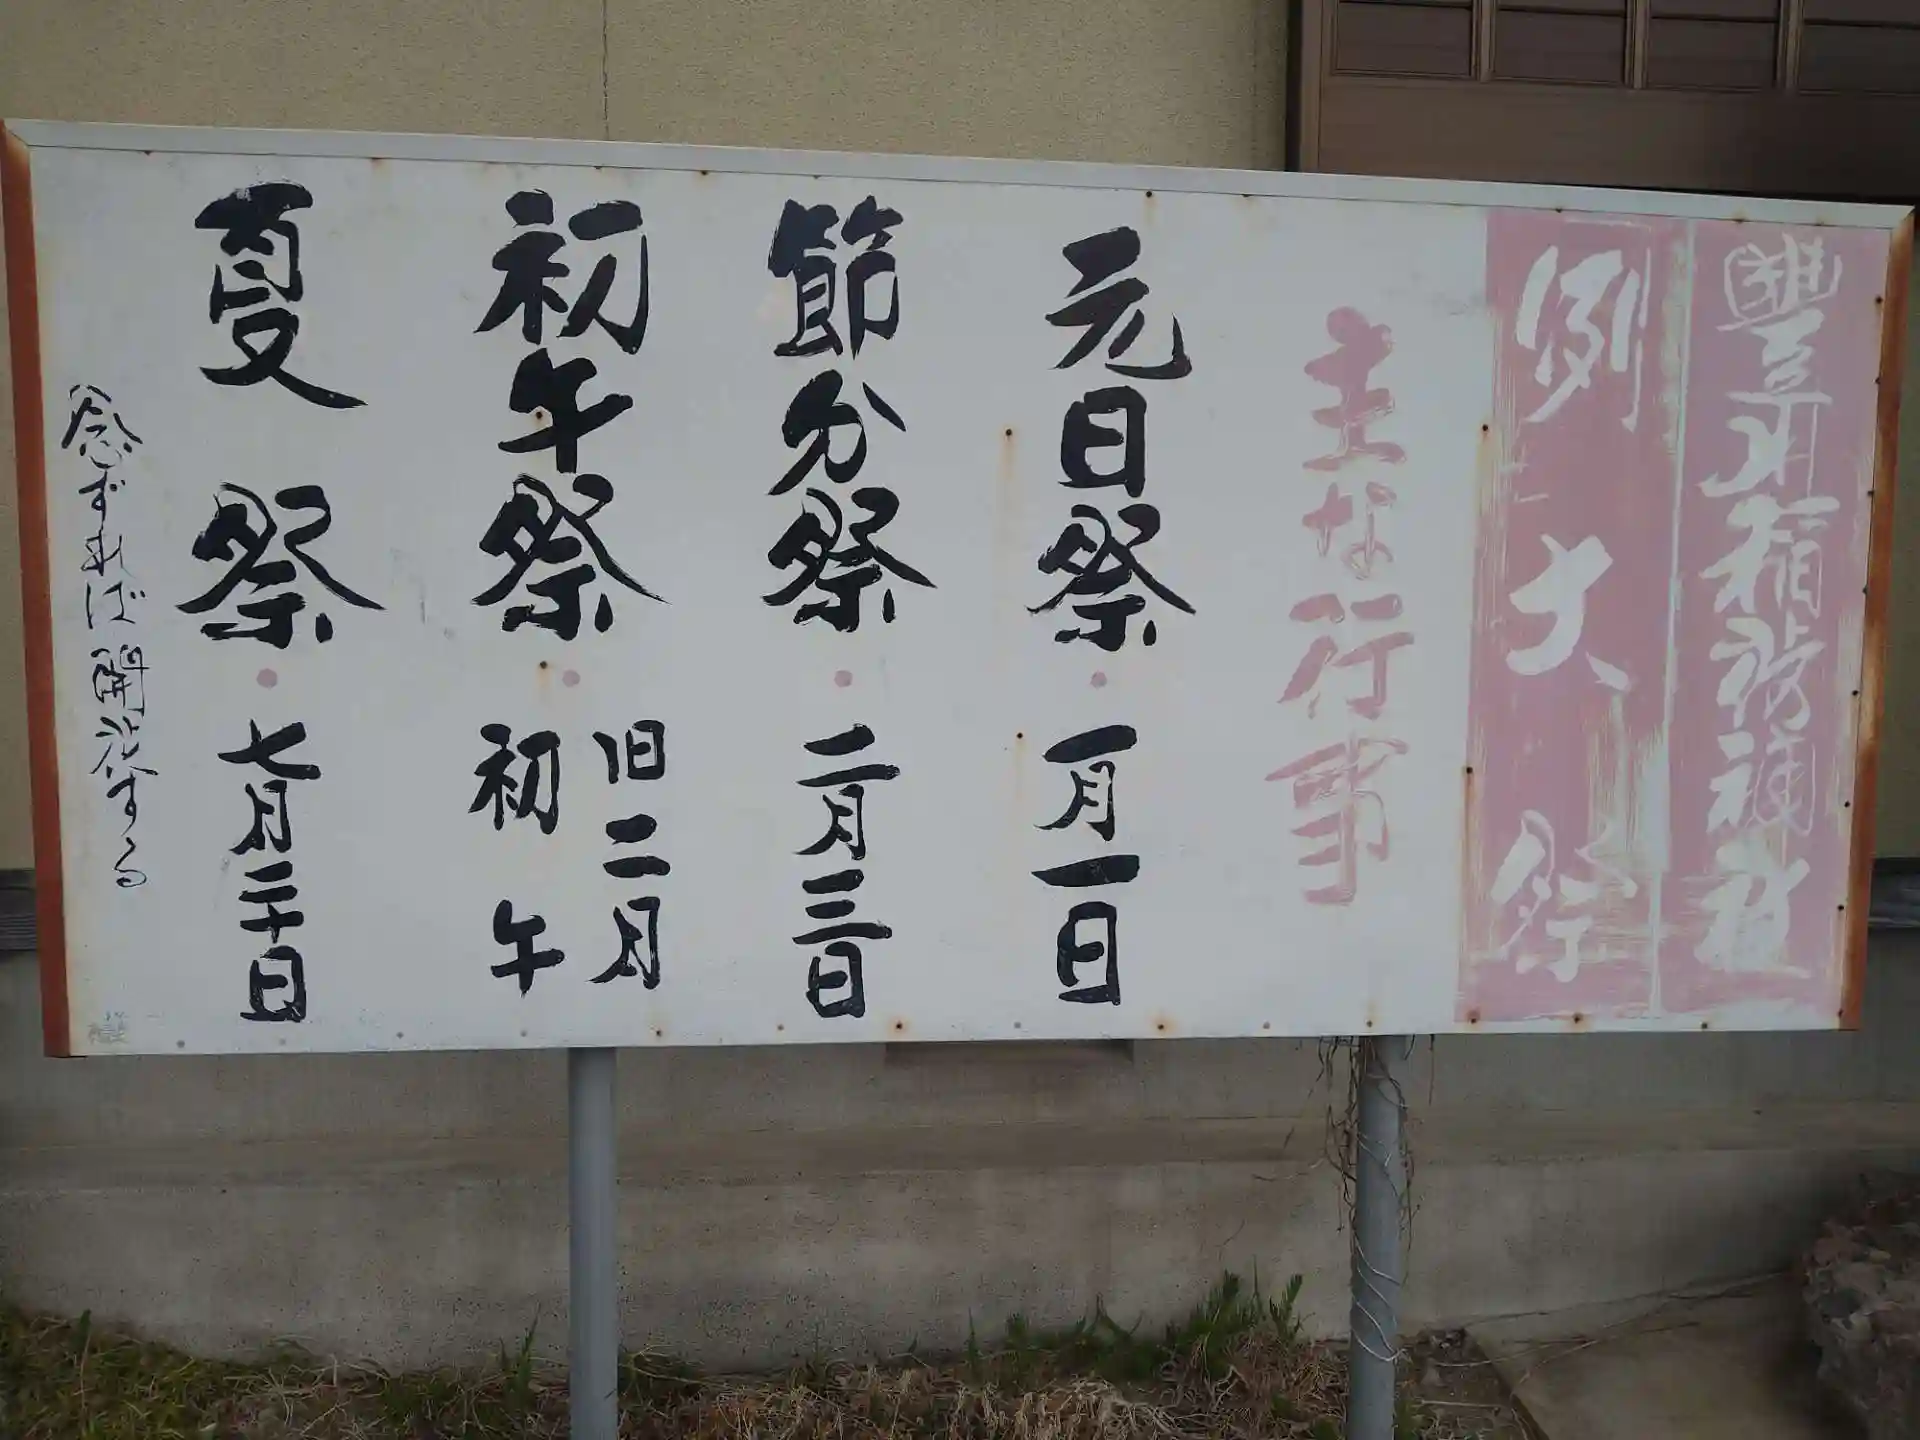 豊川稲荷神社
例大祭
主な行事
元日祭・一月一日
節分祭・二月三日
初午祭・旧二月初午
夏祭・七月二十日
念ずれば開花する